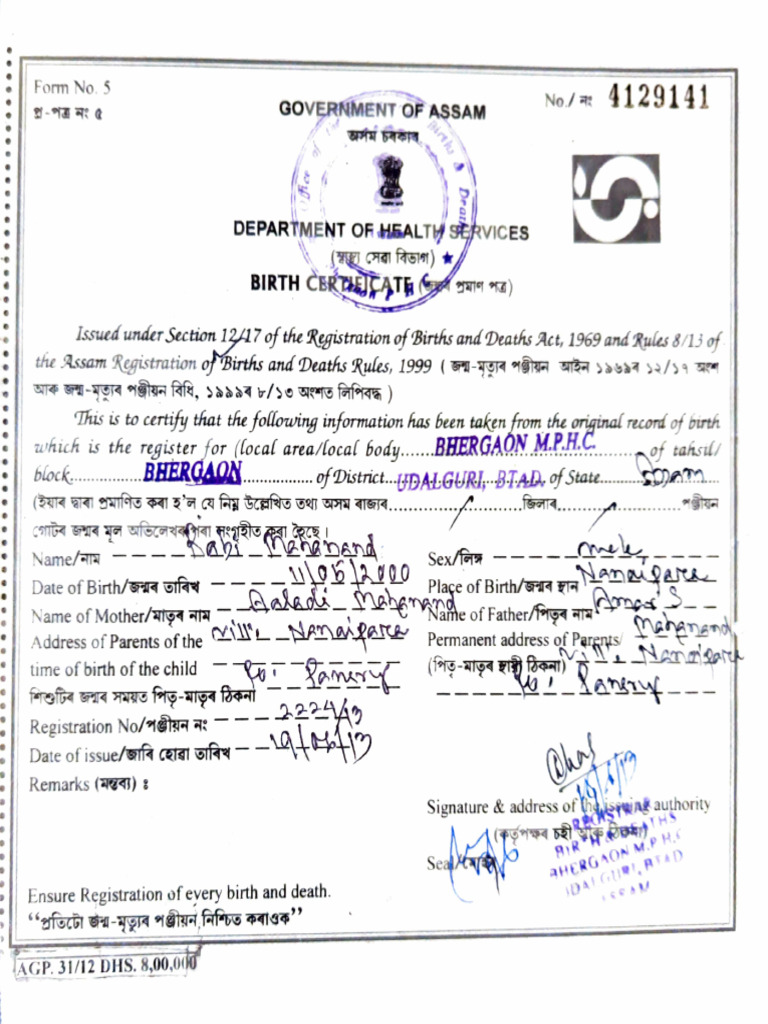 Form No. 5
প্র-পত্র নং ৫
No./ নং 4129141
GOVERNMENT OF ASSAM
অসম চৰকাৰ
DEPARTMENT OF HEALTH SERVICES
(স্বাস্থ্য সেৱা বিভাগ)
BIRTH CERTIFICATE (জন্মৰ প্ৰমাণ পত্ৰ)
Issued under Section 12/17 of the Registration of Births and Deaths Act, 1969 and Rules 8/13 of
the Assam Registration of Births and Deaths Rules, 1999 ( জন্ম-মৃত্যুৰ পঞ্জীয়ন আইন ১৯৬৯ৰ ১২/১৭ অংশ
আৰু জন্ম-মৃত্যুৰ পঞ্জীয়ন বিধি, ১৯৯৯ৰ ৮/১৩ অংশত লিপিবদ্ধ )
This is to certify that the following information has been taken from the original record of birth
which is the register for (local area/local body......BHERGAON M.P.H.C..........of tahsil/
block..............BHERGAON..............of District...UDALGURI, BTAD. of State Assam
(ইয়াৰ দ্বাৰা প্ৰমাণিত কৰা হ'ল যে নিম্ন উল্লেখিত তথ্য অসম ৰাজ্যৰ..............জিলাৰ..............পঞ্জীয়ন
গোটৰ জন্মৰ মূল অভিলেখৰ পৰা সংগৃহীত কৰা হৈছে।
Name/নাম Rabi Mahanand Sex/লিঙ্গ Male
Date of Birth/জন্মৰ তাৰিখ 11/06/2000 Place of Birth/জন্মৰ স্থান Nanaipara
Name of Mother/মাতৃৰ নাম Mahanand Name of Father/পিতৃৰ নাম Amar S Mahanand
Address of Parents of the Vill: Nanaipara Permanent address of Parents/ Vill: Nanaipara
time of birth of the child Po: Panery (পিতৃ-মাতৃৰ স্থায়ী ঠিকনা) Po: Panery
শিশুটিৰ জন্মৰ সময়ত পিতৃ-মাতৃৰ ঠিকনা
Registration No/পঞ্জীয়ন নং 2224/13
Date of issue/জাৰি হোৱা তাৰিখ 19/06/13
Remarks (মন্তব্য) :
Signature & address of the issuing authority
(কৰ্তৃপক্ষৰ চহী আৰু ঠিকনা)
Seal/মোহৰ
REGISTRAR
BIRTH & DEATHS
BHERGAON M.P.H.C
UDALGURI, BTAD
ASSAM
Ensure Registration of every birth and death.
“প্ৰতিটো জন্ম-মৃত্যুৰ পঞ্জীয়ন নিশ্চিত কৰাওক”
AGP. 31/12 DHS. 8,00,000